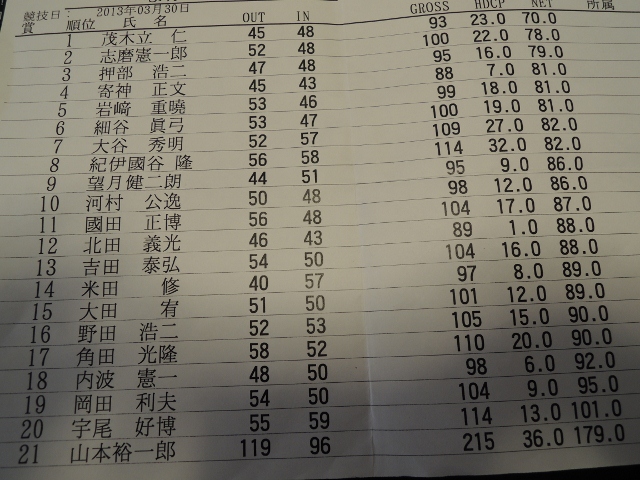 競技日: 2013年03月30日
賞 順位 氏 名 OUT IN GROSS HDCP NET 所属
1 茂木立 仁 45 48 93 23.0 70.0
2 志磨憲一郎 52 48 100 22.0 78.0
3 押部 浩二 47 48 95 16.0 79.0
4 寄神 正文 45 43 88 7.0 81.0
5 岩﨑 重曉 53 46 99 18.0 81.0
6 細谷 眞弓 53 47 100 19.0 81.0
7 大谷 秀明 52 57 109 27.0 82.0
8 紀伊國谷 隆 56 58 114 32.0 82.0
9 望月健二朗 44 51 95 9.0 86.0
10 河村 公逸 50 48 98 12.0 86.0
11 國田 正博 56 48 104 17.0 87.0
12 北田 義光 46 43 89 1.0 88.0
13 吉田 泰弘 54 50 104 16.0 88.0
14 米田 修 40 57 97 8.0 89.0
15 大田 宥 51 50 101 12.0 89.0
16 野田 浩二 52 53 105 15.0 90.0
17 角田 光隆 58 52 110 20.0 90.0
18 内波 憲一 48 50 98 6.0 92.0
19 岡田 利夫 54 50 104 9.0 95.0
20 宇尾 好博 55 59 114 13.0 101.0
21 山本裕一郎 119 96 215 36.0 179.0